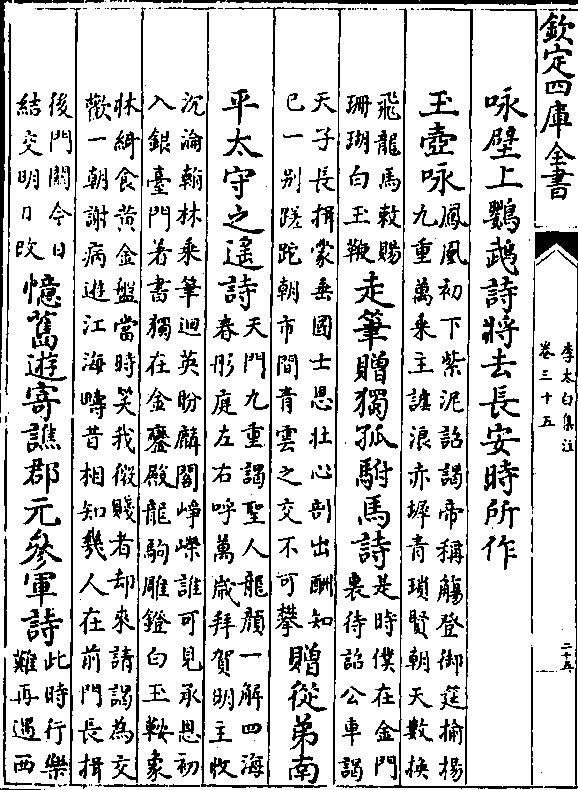 欽定四庫全書
李太白集注
卷三十五
二十五
咏壁上鸚鵡詩將去長安時所作
玉壺咏
鳳凰初下紫泥詔謁帝稱觴登御筵揄揚
九重萬乘主謔浪赤墀青瑣賢朝天數換
飛龍馬敕賜
珊瑚白玉鞭
走筆贈獨孤駙馬詩
是時僕在金門
裏待詔公車謁
天子長揖蒙垂國士恩壯心剖出酬知
已一别蹉跎朝市間青雲之交不可攀
贈從弟南
平太守之遙詩
天門九重謁聖人龍顏一解四海
春彤庭左右呼萬歲拜賀明主收
沉淪翰林秉筆迴英盼麟閣崢嶸誰可見承恩初
入銀臺門著書獨在金鑾殿龍駒雕鐙白玉鞍象
牀綺食黃金盤當時笑我微賤者却來請謁為交
歡一朝謝病遊江海疇昔相知幾人在前門長揖
後門關今日
結交明日改
憶舊遊寄譙郡元參軍詩
此時行樂
難再遇西